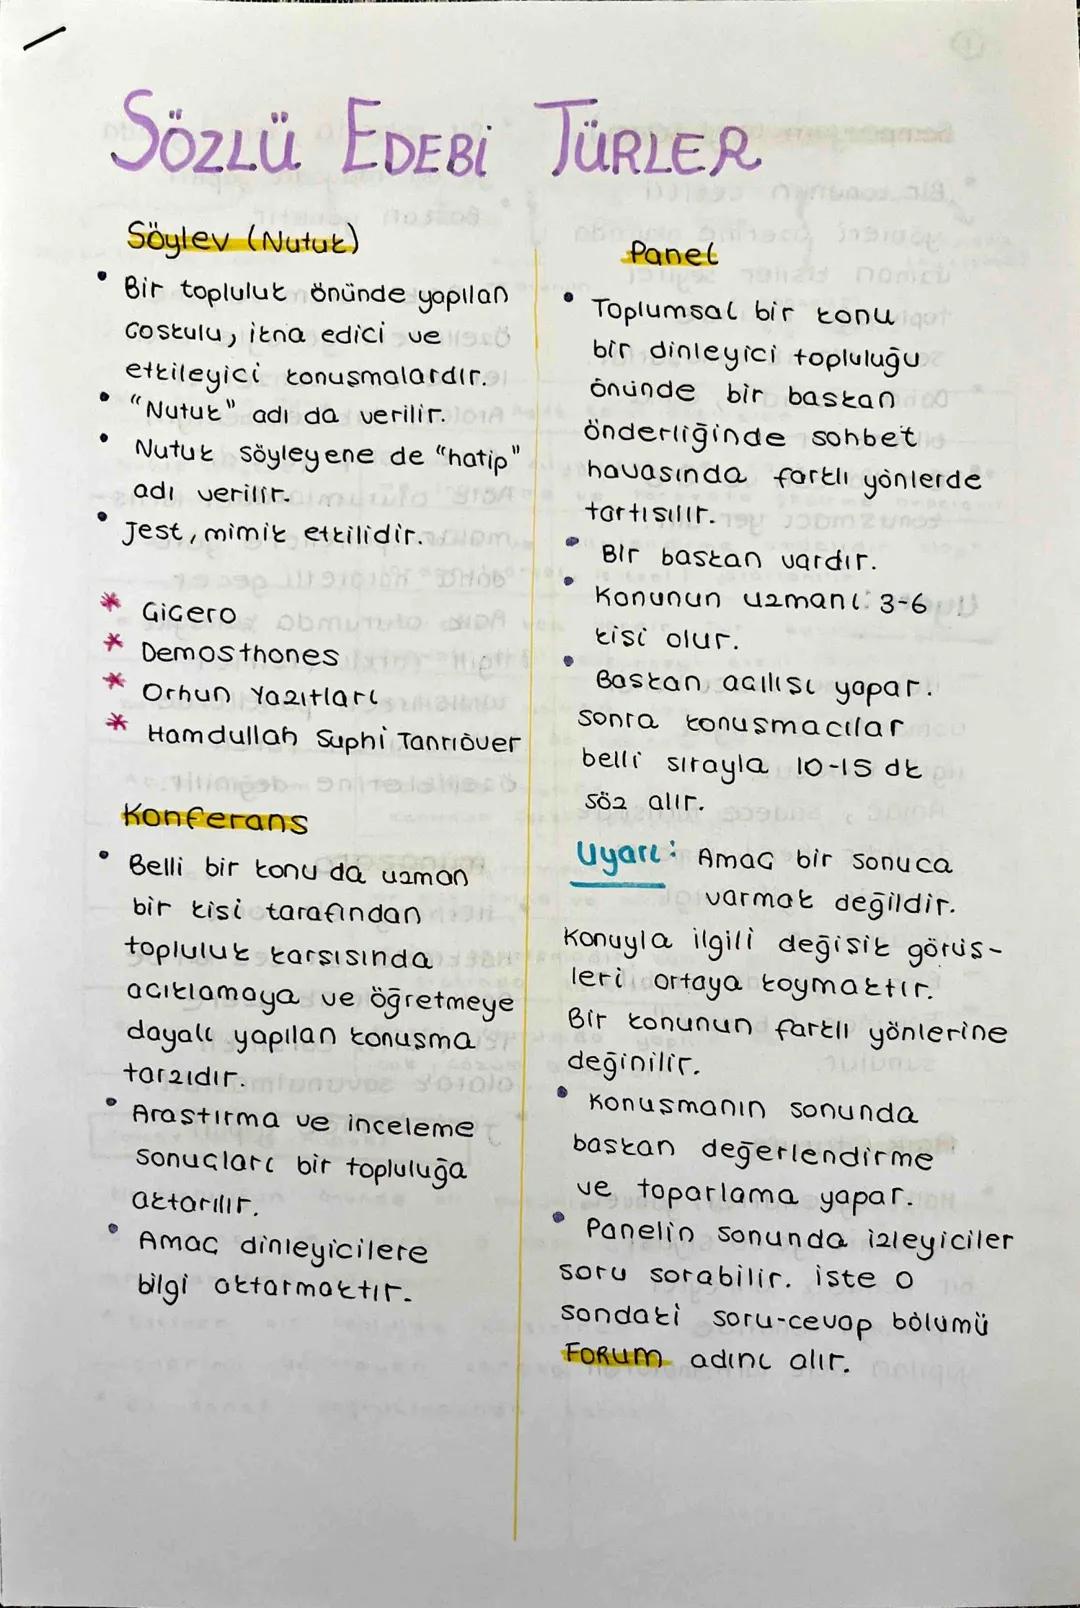 SÖZLÜ EDEBİ TÜRLER
Söylev (Nutuk)
• Bir topluluk önünde yapılan
coskulu, ikna edici ve
etkileyici konuşmalardır.
• "Nutuk" adı da verilir.
• Nutuk söyleyene de "hatip"
adı verilir.
• Jest, mimik etkilidir.
* Cicero
* Demosthones
* Orhun Yazıtları
* Hamdullah Suphi Tanrıöver
Konferans
• Belli bir konu da uzman
bir kişi tarafından
topluluk karşısında
acıklamaya ve öğretmeye
dayalı yapılan konuşma
tarzıdır.
• Araştırma ve inceleme
sonuçları bir topluluğa
aktarılır.
• Amaç dinleyicilere
bilgi aktarmaktır.
Panel
• Toplumsal bir konu
bir dinleyici topluluğu
önünde bir başkan
önderliğinde sohbet
havasında farklı yönlerde
tartısılır.
• Bir başkan vardır.
• Konunun uzmanı 3-6
kişi olur.
• Başkan açılışı yapar.
sonra konuşmacılar
belli sırayla 10-15 dk
söz alır.
Uyarı: Amaç bir sonuca
varmak değildir.
Konuyla ilgili değişik görüş-
leri ortaya koymaktır.
Bir konunun farklı yönlerine
değinilir.
• Konuşmanın sonunda
başkan değerlendirme
ve toparlama yapar.
• Panelin sonunda izleyiciler
soru sorabilir. işte o
sondaki soru-cevap bölümü
FORUM adını alır.